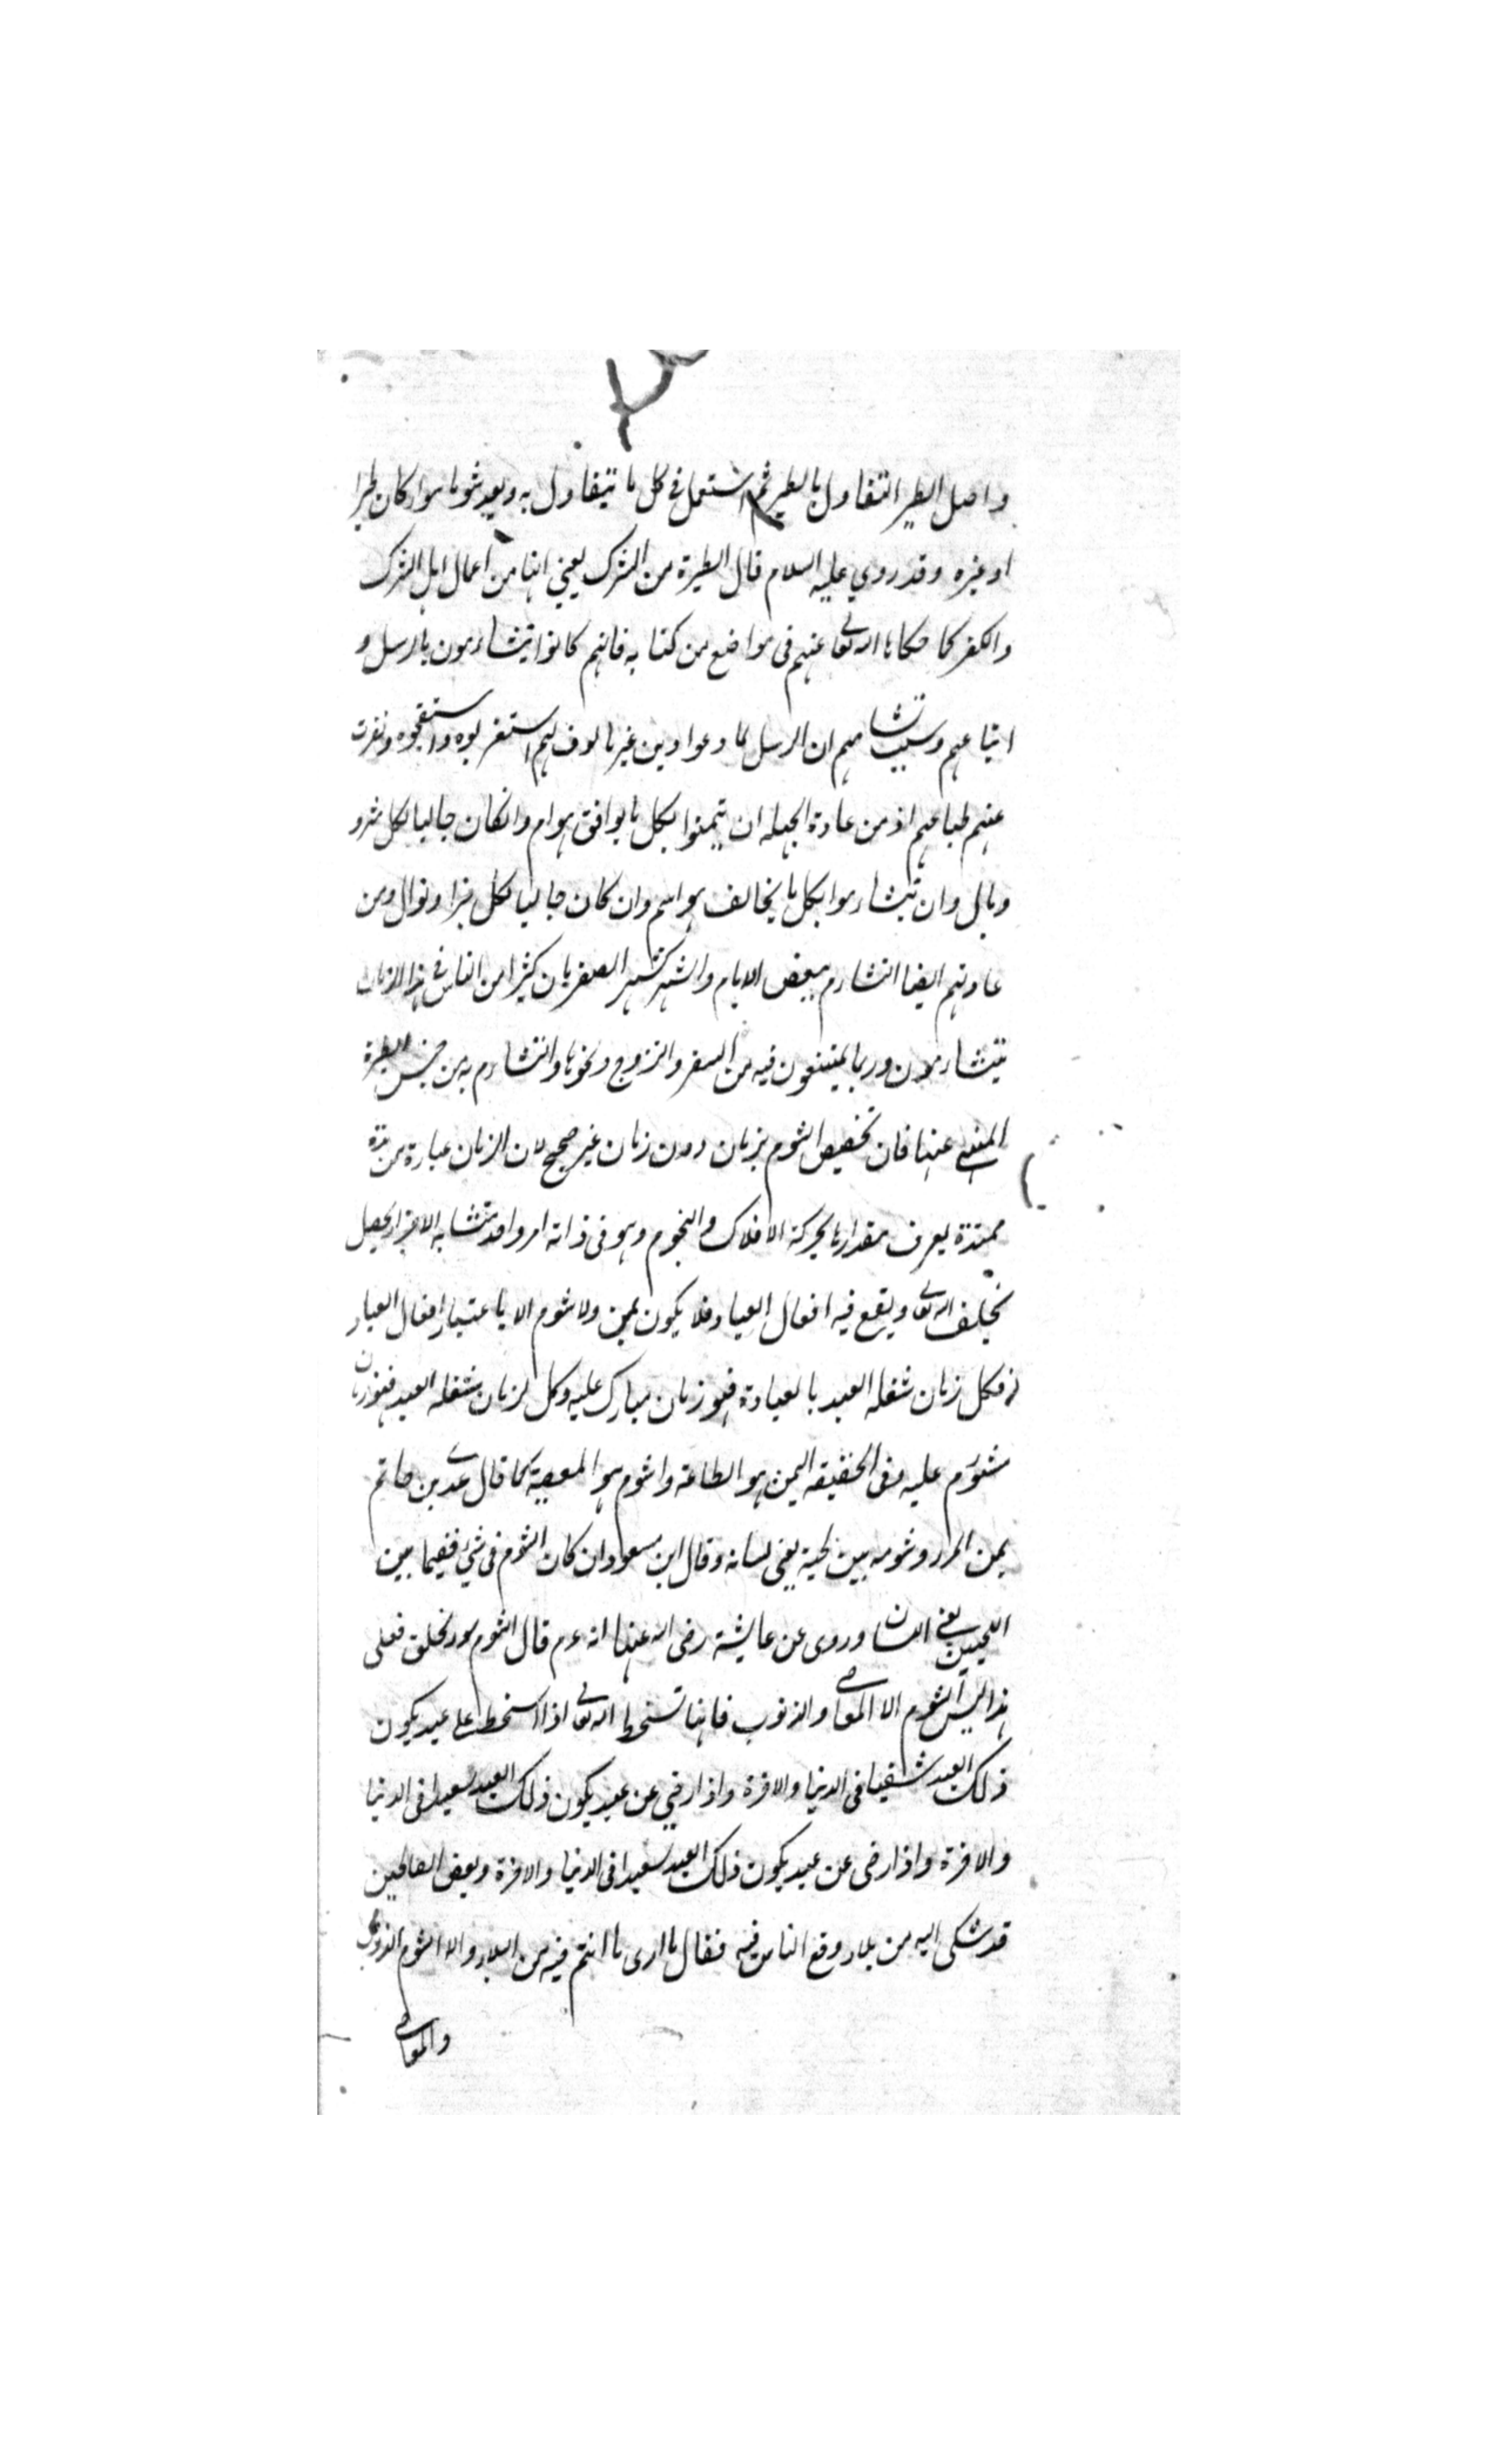 واصل الطير التفاول بالطير ثم استعمل فى كل ما يتفاول به ويعد شوما سواء كان طيرا
او غيره وقد روي عليه السلام قال الطيرة من الشرك يعني انها من اعمال اهل الشرك
والكفر كما حكاها الله تعالى عنهم فى مواضع من كتابه فانهم كانوا يتشاءمون بالرسل و
اتباعهم وسبب تشامهم ان الرسل لما دعوا دين غير مالوف لهم استغربوه واستقبحوه ونفرت
عنهم طباعهم اذ من عادة الجهلة ان يتمنوا بكل ما يوافق هوام وانكان جالبا لكل شر و
وبال وان يتشارموا بكل ما يخالف هواهم وان كان جالبا لكل خير ونوال ومن
عادتهم ايضا التشارم ببعض الايام والشهر كشهر الصفر بان كثيرا من الناس فى هذا الزمان
يتشاءمون وربما يمتنعون فيه من السفر والتزوج ونحوها والتشاءم به من جنس الطيرة
المنهى عنها فان تخصيص الشوم بزمان دون زمان غير صحيح لان الزمان عبارة من مدة
ممتدة يعرف مقدارها بحركة الافلاك والنجوم وهو فى ذاته امر واحد متشابه الاجزاء يحصل
بخلق الله تعالى ويقع فيه افعال العباد فلا يكون يمن ولا شوم الا باعتبار افعال العباد
فكل زمان شغله العبد بالعبادة فهو زمان مبارك عليه وكل زمان شغله العبد فهو زمان
مشوم عليه وفى الحقيقة اليمن هو الطاعة والشوم هو المعصية كما قال عدى بن حاتم
يمن المرء وشومه بين لحية يعنى لسانه وقال ابن مسعود ان كان الشوم فى شئ ففيما بين
اللحيين يعنى اللسان وروى عن عايشة رضى الله عنها انه عم قال الشوم سوء الخلق فعلى
هذا ليس الشوم الا المعاصى والذنوب فانها تسخط الله تعالى اذا اسخط على عبد يكون
ذلك العبد شقيا فى الدنيا والاخرة واذا رضي عن عبد يكون ذلك العبد سعيدا فى الدنيا
والاخرة واذا رضى عن عبد يكون ذلك العبد سعيدا فى الدنيا والاخرة وبعض الصالحين
قد شكى اليه من بلاء وقع الناس فيه فقال ما ارى ما انتم فيه من البلاء والا الشوم الذنوب
والمعاصى